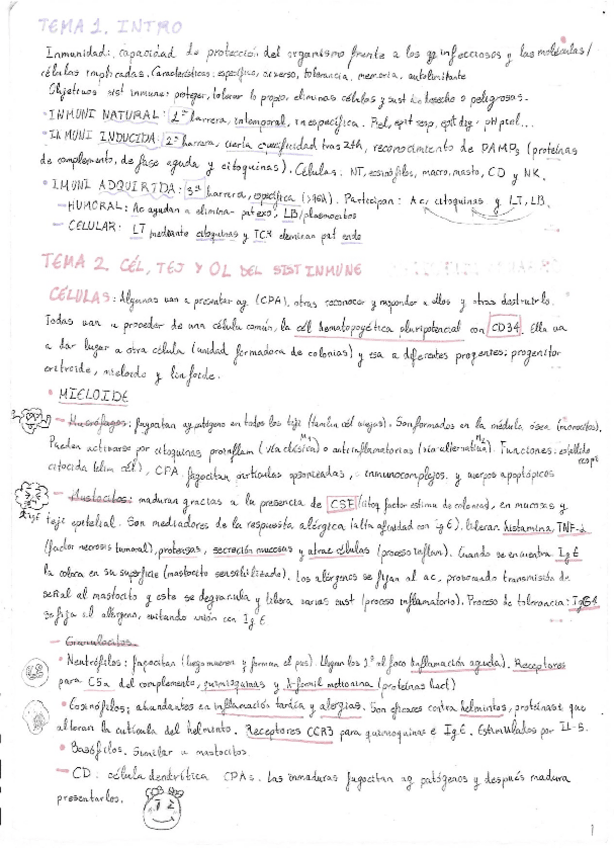 TEMA 1. INTRO
Inmunidad: capacidad de protección del organismo frente a los ag infecciosos y las moléculas/
células implicadas. Características: específico, diverso, tolerancia, memoria, autolimitante
Objetivos sist inmune: proteger, tolerar lo propio, eliminar células y sust de desecho o peligrosas.
• INMUNI NATURAL: 1ª barrera, intemporal, inespecífica. Piel, epit resp, epit dig, pH
• INMUNI INDUCIDA: 2ª barrera, cierta especificidad tras reconocimiento de PAMPs (proteínas
de complemento, de fase aguda y citoquinas). Células: NT, eosinófilos, macro, masto, CD y NK.
• INMUNI ADQUIRIDA: 3ª barrera, específica (>96h). Participan: Ac, citoquinas y LT, LB.
– HUMORAL: Ac ayudan a eliminar pat exo, LB/plasmocitos
– CELULAR: LT mediante citoquinas y TCR eliminan pat endo
TEMA 2. CÉL, TEJ Y OL DEL SIST INMUNE
CÉLULAS: Algunas van a presentar ag (CPA), otras reconocer y responder a ellos y otras destruirlo.
Todas van a proceder de una célula común, la cél hematopoyética pluripotencial con CD34. Ella va
a dar lugar a otra célula (unidad formadora de colonias) y esa a diferentes progenies: progenitor
eritroide, mieloide y linfoide.
• MIELOIDE
– Macrófagos: fagocitan ag patógeno en todos los tejs (también cél viejas). Son formados en la médula ósea (monocitos).
Pueden activarse por citoquinas proinflam (vía clásica) M1 o antiinflamatorias (vía alternativa) M2. Funciones: estallido resp
citocida (elim cél), CPA, fagocitan partículas opsonizadas, inmunocomplejos, y cuerpos apoptópicos
– Mastocitos: maduran gracias a la presencia de CSF (citoq factor estima de colonias), en mucosas y
teji epitelial. Son mediadores de la respuesta alérgica (alta afinidad con ig E). Liberan histamina, TNF-α
(factor necrosis tumoral), proteasas, secreción mucosas y atrae células (proceso inflam). Cuando se encuentra IgE
la coloca en su superficie (mastocito sensibilizado). Los alérgenos se fijan al ac, provocando transmisión de
señal al mastocito y este se degranula y libera varias sust (proceso inflamatorio). Proceso de tolerancia: IgG4
se fija al alérgeno, evitando unión con Ig E.
– Granulocitos
• Neutrófilos: fagocitan (luego mueren y forman el pus). Llegan los 1º al foco (inflamación aguda). Receptores
para C5a del complemento, quimioquinas y N-formil metionina (proteínas bact)
• Eosinófilos: abundantes en inflamación tardía y alergias. Son eficaces contra helmintos, proteinasas que
alteran la cutícula del helminto. Receptores CCR3 para quimioquinas e IgE. Estimulados por IL-5.
• Basófilos. Similar a mastocitos.
– CD: célula dendrítica CPAs. Las inmaduras fagocitan ag patógenos y después madura
presentarlos.
1